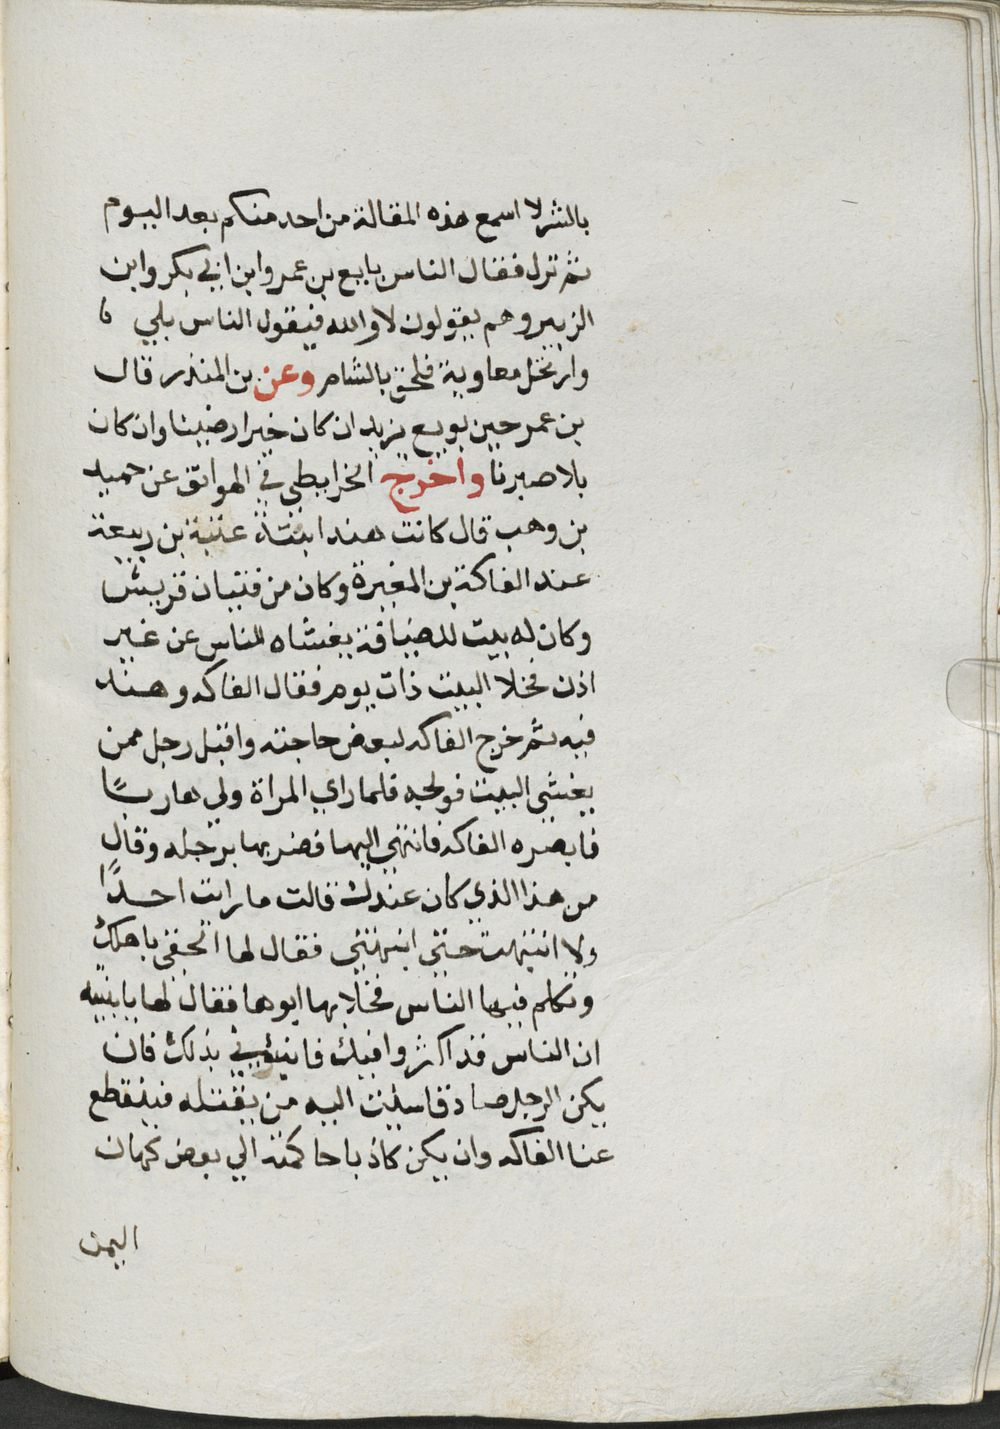 بالشر لا اسمع هذه المقالة من احد منكم بعد اليوم
ثم نزل فقال الناس بايع بن عمر وابن ابي بكر وابن
الزبير وهم يقولون لا والله فيقول الناس بلي
وارتحل معاوية فلحق بالشام وعن بن المنذر قال
بن عمر حين بويع يزيد ان كان خيرا رضينا وان كان
بلا صبرنا واخرج الخرايطي في الهواتف عن حميد
بن وهب قال كانت هند ابنة عتبة بن ربيعة
عند الفاكة بن المغيرة وكان من فتيان قريش
وكان له بيت للضيافة يغشاه الناس عن غير
اذن فخلا البيت ذات يوم فقال الفاكه وهند
فيه ثم خرج الفاكه لبعض حاجته واقبل رجل ممن
يغشي البيت فولجه فلما راي المراة ولي هاربًا
فابصره الفاكه فانتهي اليها فضربها برجله وقال
من هذا الذي كان عندك قالت ما رايت احدًا
ولا انتبهت حتي انبهتني فقال لها الحقي باهلك
وتكلم فيها الناس فخلا بها ابوها فقال لها يا بنيه
ان الناس قد اكثروا فيك فانبئيني بذلك فان
يكن الرجل صادقا سيلت اليه من يقتله فينقطع
عنا الفاكه وان يكن كاذبا حاكمته الي بعض كهان
اليمن